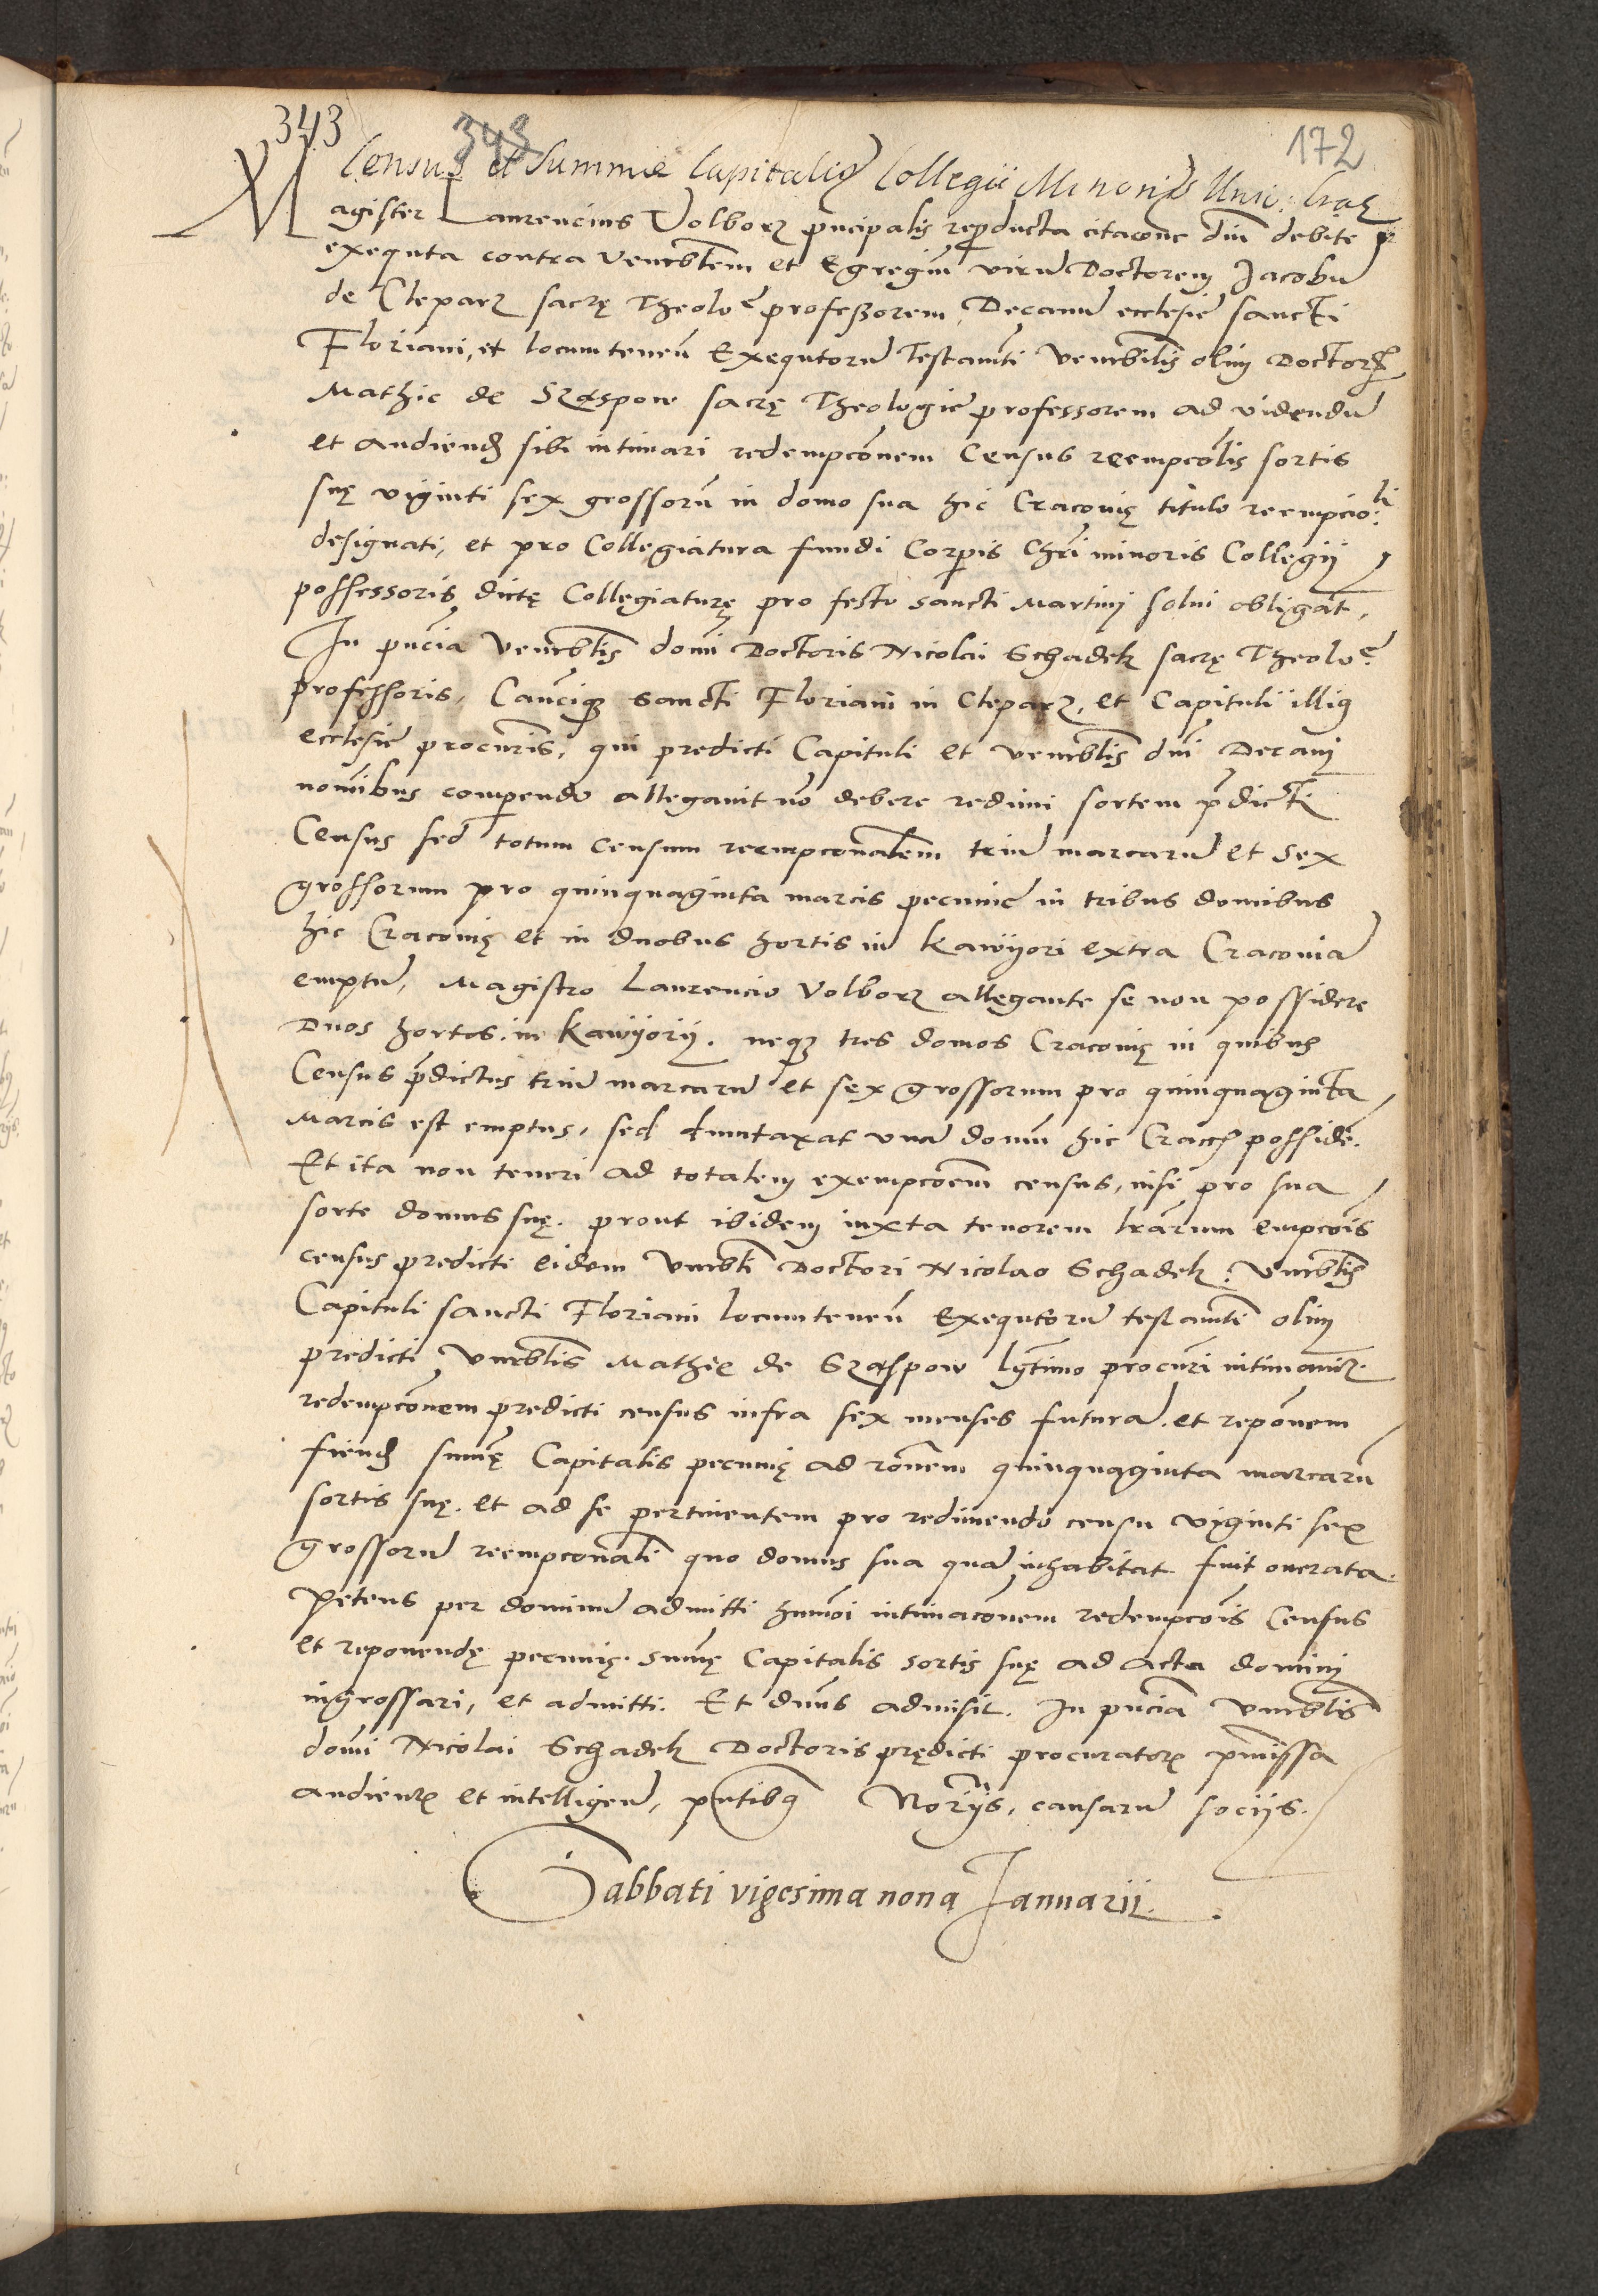 343 343 172
Census et Summæ Capitalis Collegii Minoris Univ: Crac
Magister Laurencius Volborz pncipalis reproducta citacone dni debite
exequta contra Venerablem et Egregiu viru Doctorem Jacobu
de Cleparz sacrę Theoloe profeßorem, Decanu ecclesie sancti
Floriani, et locumtenen Exequtoru Testamti venerablis olim Doctoris
Mathie de Szaspow sacrę Theologie professorem ad videndu
et audiend sibi intimari redempconem Census reempcolis sortis
suę viginti sex grossoru in domo sua hic Cracovię titulo reempcioli
designati, et pro Collegiatura fundi Corpis Chri minoris Collegij
possessoris dictę Collegiaturę pro festo sancti Martini solui obligat,
In pncia Venerablis domi Doctoris Nicolai Schadek sacrę Theoloe
professoris, Canciq sancti Floriani in Cleparz, et Capituli illig
ecclesie procuris, qui predicti Capituli et venerablis dni Decani
nomibus comperendo allegauit no debere redimi sortem pdicti
Census sed totum Censum reempconalem triu marcaru et sex
grossorum pro quinquaginta marcis pecunie in tribus domibus
hic Cracovię et in duobus hortis in Kawijori extra Cracovia
emptu, Magistro Laurencio Volborz allegante se non possidere
Duos hortos in Kawijorij. neq tres domos Cracovię in quibus
Census pdictus triu marcaru et sex grossorum pro quinquaginta
Marcis est emptus, sed duntaxat una domu hic Cracch posside.
Et ita non teneri ad totalem exempcoem census, nisi pro sua
sorte domus suę. prout ibidem iuxta tenorem lrarum empcois
census predicti eidem Vnerbli Doctori Nicolao Schadek Vnerblis
Capituli sancti Floriani locumtenen Exequtoru testamti olim
predicti Vnerblis Mathie de Szaspow lgtimo procuri intimauit
redempconem predicti census infra sex menses futura. et reponem
fiend sumę Capitalis pecunię ad ronem quinquaginta marcaru
sortis suę. et ad se pertinentem pro redimendo censu viginti sex
grossoru reempconali quo domus sua qua inhabitat fuit onerata.
Petens per dominu admitti humoi intimaconem redempcois Census
et reponendę pecunię sumę Capitalis sortis suę ad acta domini
ingrossari, et admitti. Et dnus admisit. In pncia Vnerblis
domi Nicolai Schadek Doctoris prędicti procurator pmissa
audien et intelligen, pntibq Noriis, causaru sociis.
Sabbati vigesima nona Januarii.